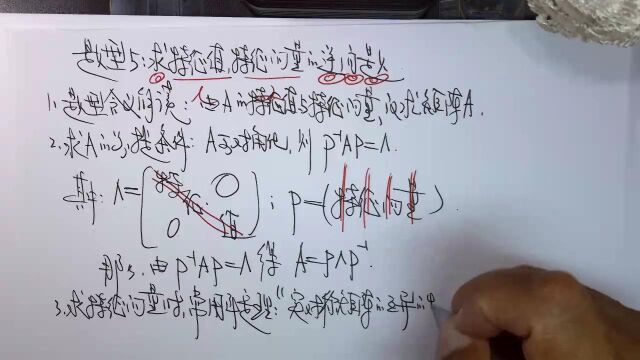 题型5:求特征值,特征向量的逆问题
1.题型含义的语言:由A的特征值与特征向量,反求矩阵A.
2.求A的 条件:A可对角化,则 P⁻¹AP=Λ.
其中:Λ=(特 征 值 0 0);P=(特征向量).
那么,由P⁻¹AP=Λ得 A=PΛP⁻¹.
3.求特征向量时,常用性定理:"实对称矩阵的不同的